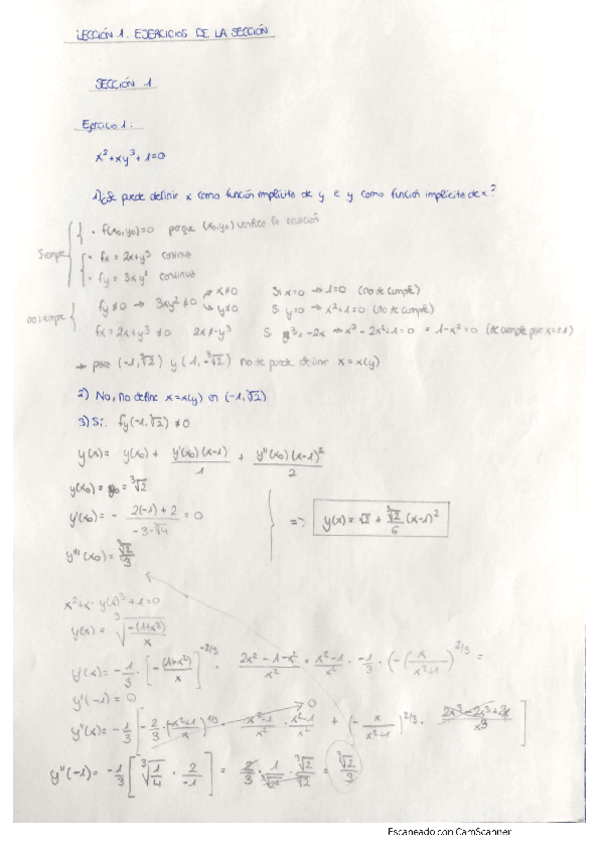 LECCIÓN 1. EJERCICIOS DE LA SECCIÓN
SECCIÓN 1
Ejercicio 1:
x² + xy³ + 1 = 0
1) ¿Se puede definir x como función implícita de y e y como función implícita de x?
Siempre
· f(x₀,y₀)=0 porque (x₀,y₀) verifica la ecuación
· fx = 2x+y³ continua
· fy = 3xy² continua
no siempre
fy ≠ 0 → 3xy² ≠ 0 x≠0 Si x=0 → 1=0 (no se cumple)
y≠0 Si y=0 → x²+1=0 (no se cumple)
fx = 2x+y³ ≠ 0 2x ≠ -y³ Si y³ = -2x → x² - 2x² + 1 = 0 = 1-x² = 0 (se cumple por x=±1)
→ para (-1, ∛2) y (1, -∛2) no se puede definir x = x(y)
2) No, no define x = x(y) en (-1, ∛2)
3) Sí. fy(-1, ∛2) ≠ 0
y(x) = y(x₀) + y'(x₀)(x-1)/1 + y''(x₀)(x-1)²/2
y(x₀) = y₀ = ∛2
y'(x₀) = - 2(-1)+2 / -3·∛4 = 0
=> y(x) = √2 + ∛2/6 (x-1)²
y''(x₀) = ∛2/3
x² + x · y(x)³ + 1 = 0
y(x) = ∛(-(1+x²)/x)
y'(x) = -1/3 · [-(1+x²)/x]^(-2/3) · (2x² - 1 - x²)/x² = (x²-1)/x² · -1/3 · (-(x/(x²+1)))^(2/3) =
y'(-1) = 0
y''(x) = -1/3 [-2/3 · (-(x²+1)/x)^(1/3) · (x²-1)/x² · (x²-1)/x² → 0 + (-x/(x²+1))^(2/3) · (2x³ - 2x³ + 2x)/x³]
y''(-1) = -1/3 [∛(1/4) · 2/-1] = 2/3 · 1/∛4 · ∛2/∛2 = ∛2/3
Escaneado con CamScanner